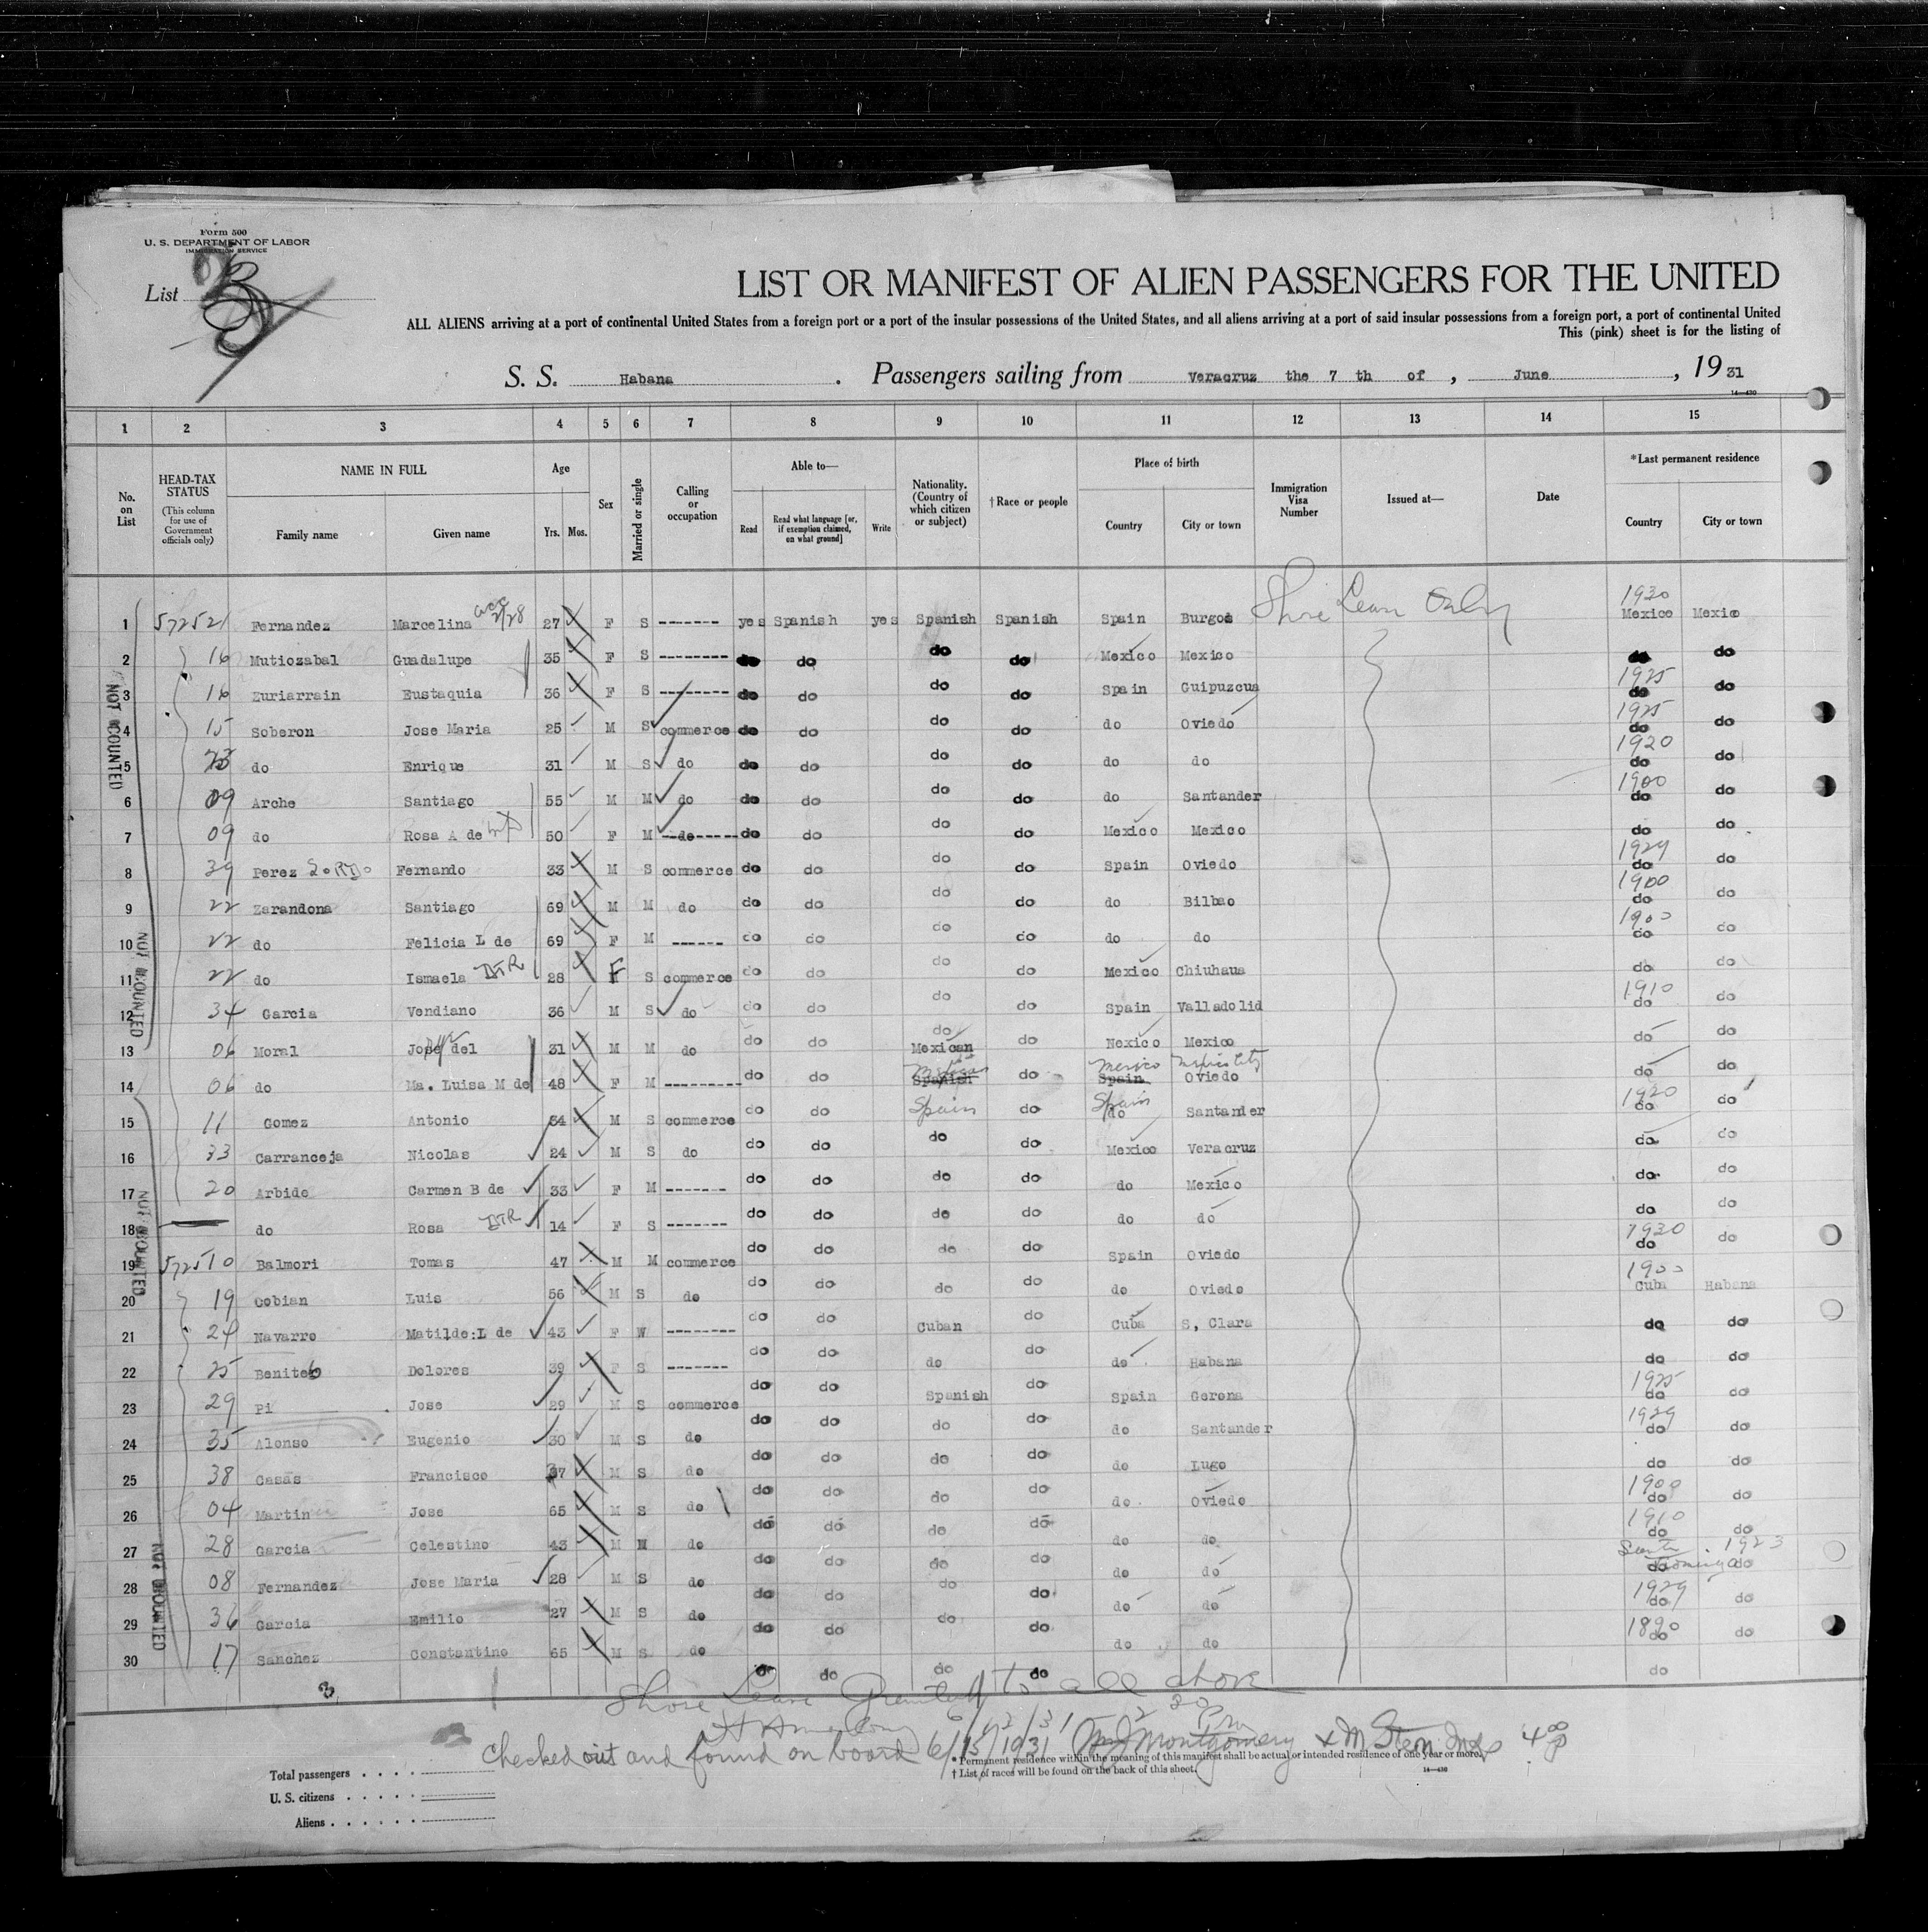 Form 500
U. S. DEPARTMENT OF LABOR
IMMIGRATION SERVICE
List
LIST OR MANIFEST OF ALIEN PASSENGERS FOR THE UNITED
ALL ALIENS arriving at a port of continental United States from a foreign port or a port of the insular possessions of the United States, and all aliens arriving at a port of said insular possessions from a foreign port, a port of continental United
This (pink) sheet is for the listing of
S. S. Habana . Passengers sailing from Veracruz the 7 th of , June , 19 31
14—430
1 2 3 4 5 6 7 8 9 10 11 12 13 14 15
No. on List
HEAD-TAX STATUS
(This column for use of Government officials only)
NAME IN FULL
Family name Given name
Age
Yrs. Mos.
Sex
Married or single
Calling or occupation
Able to—
Read
Read what language [or, if exemption claimed, on what ground]
Write
Nationality. (Country of which citizen or subject)
† Race or people
Place of birth
Country City or town
Immigration Visa Number
Issued at—
Date
* Last permanent residence
Country City or town
Shore Leave Only
NOT COUNTED
NOT COUNTED
NOT COUNTED
NOT COUNTED
1 572521 Fernandez Marcelina 27 F S ------- yes Spanish yes Spanish Spanish Spain Burgos 1930 Mexico Mexico
2 16 Mutiozabal Guadalupe 35 F S -------- do do do do Mexico Mexico do do
3 16 Zuriarrain Eustaquia 36 F S -------- do do do do Spain Guipuzcua 1925 do do
4 15 Soberon Jose Maria 25 M S commerce do do do do do Oviedo 1925 do do
5 do Enrique 31 M S do do do do do do do 1920 do do
6 09 Arche Santiago 55 M M do do do do do do Santander 1900 do do
7 09 do Rosa A de 50 F M --de------ do do do do Mexico Mexico do do
8 39 Perez SORDO Fernando 33 M S commerce do do do do Spain Oviedo 1929 do do
9 22 Zarandona Santiago 69 M M do do do do do do Bilbao 1900 do do
10 22 do Felicia L de 69 F M ------ do do do do do do 1900 do do
11 22 do Ismaela DTR 28 F S commerce do do do do Mexico Chiuhaua do do
12 34 Garcia Vendiano 36 M S do do do do do Spain Valladolid 1910 do do
13 06 Moral Jose del 31 M M do do do do Mexican do Mexico Mexico do do
14 06 do Ma. Luisa M de 48 F M --------- do do Spanish do Mexico Spain Mexico City Oviedo do do
15 11 Gomez Antonio 54 M S commerce do do Spain do Spain do Santander 1920 do do
16 33 Carranceja Nicolas 24 M S do do do do do Mexico Veracruz do do
17 20 Arbide Carmen B de 33 F M ------- do do do do do Mexico do do
18 do Rosa DTR 14 F S ------- do do do do do do do do
19 572510 Balmori Tomas 47 M M commerce do do do do Spain Oviedo 1930 do do
20 19 Cobian Luis 56 M S do do do do do do Oviedo 1900 Cuba Habana
21 24 Navarro Matilde:L de 43 F W -------- do do Cuban do Cuba S, Clara do do
22 25 Benitez Dolores 39 F S ------- do do do do do Habana do do
23 29 Pi Jose 29 M S commerce do do Spanish do Spain Gerona 1925 do do
24 35 Alonso Eugenio 30 M S do do do do do do Santander 1929 do do
25 38 Casas Francisco 37 M S do do do do do do Lugo do do
26 04 Martin Jose 65 M S do do do do do do Oviedo 1900 do do
27 28 Garcia Celestino 43 M W do do do do do do do 1910 do do
28 08 Fernandez Jose Maria 28 M S do do do do do do do Santo Domingo 1923 do do
29 36 Garcia Emilio 27 M S do do do do do do do 1929 do do
30 17 Sanchez Constantino 65 M S do do do do do do do 1890 do do
do do do do do
3
Shore Leave Granted to all above
checked out and found on board 6/15/1931 Montgomery & M Stern Insps 4 00 p
* Permanent residence within the meaning of this manifest shall be actual or intended residence of one year or more.
† List of races will be found on the back of this sheet.
14—430
Total passengers . . . .
U. S. citizens . . . . .
Aliens . . . . . .